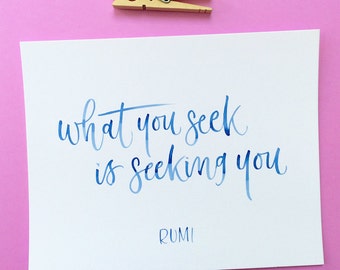 what you seek
is seeking you
RUMI